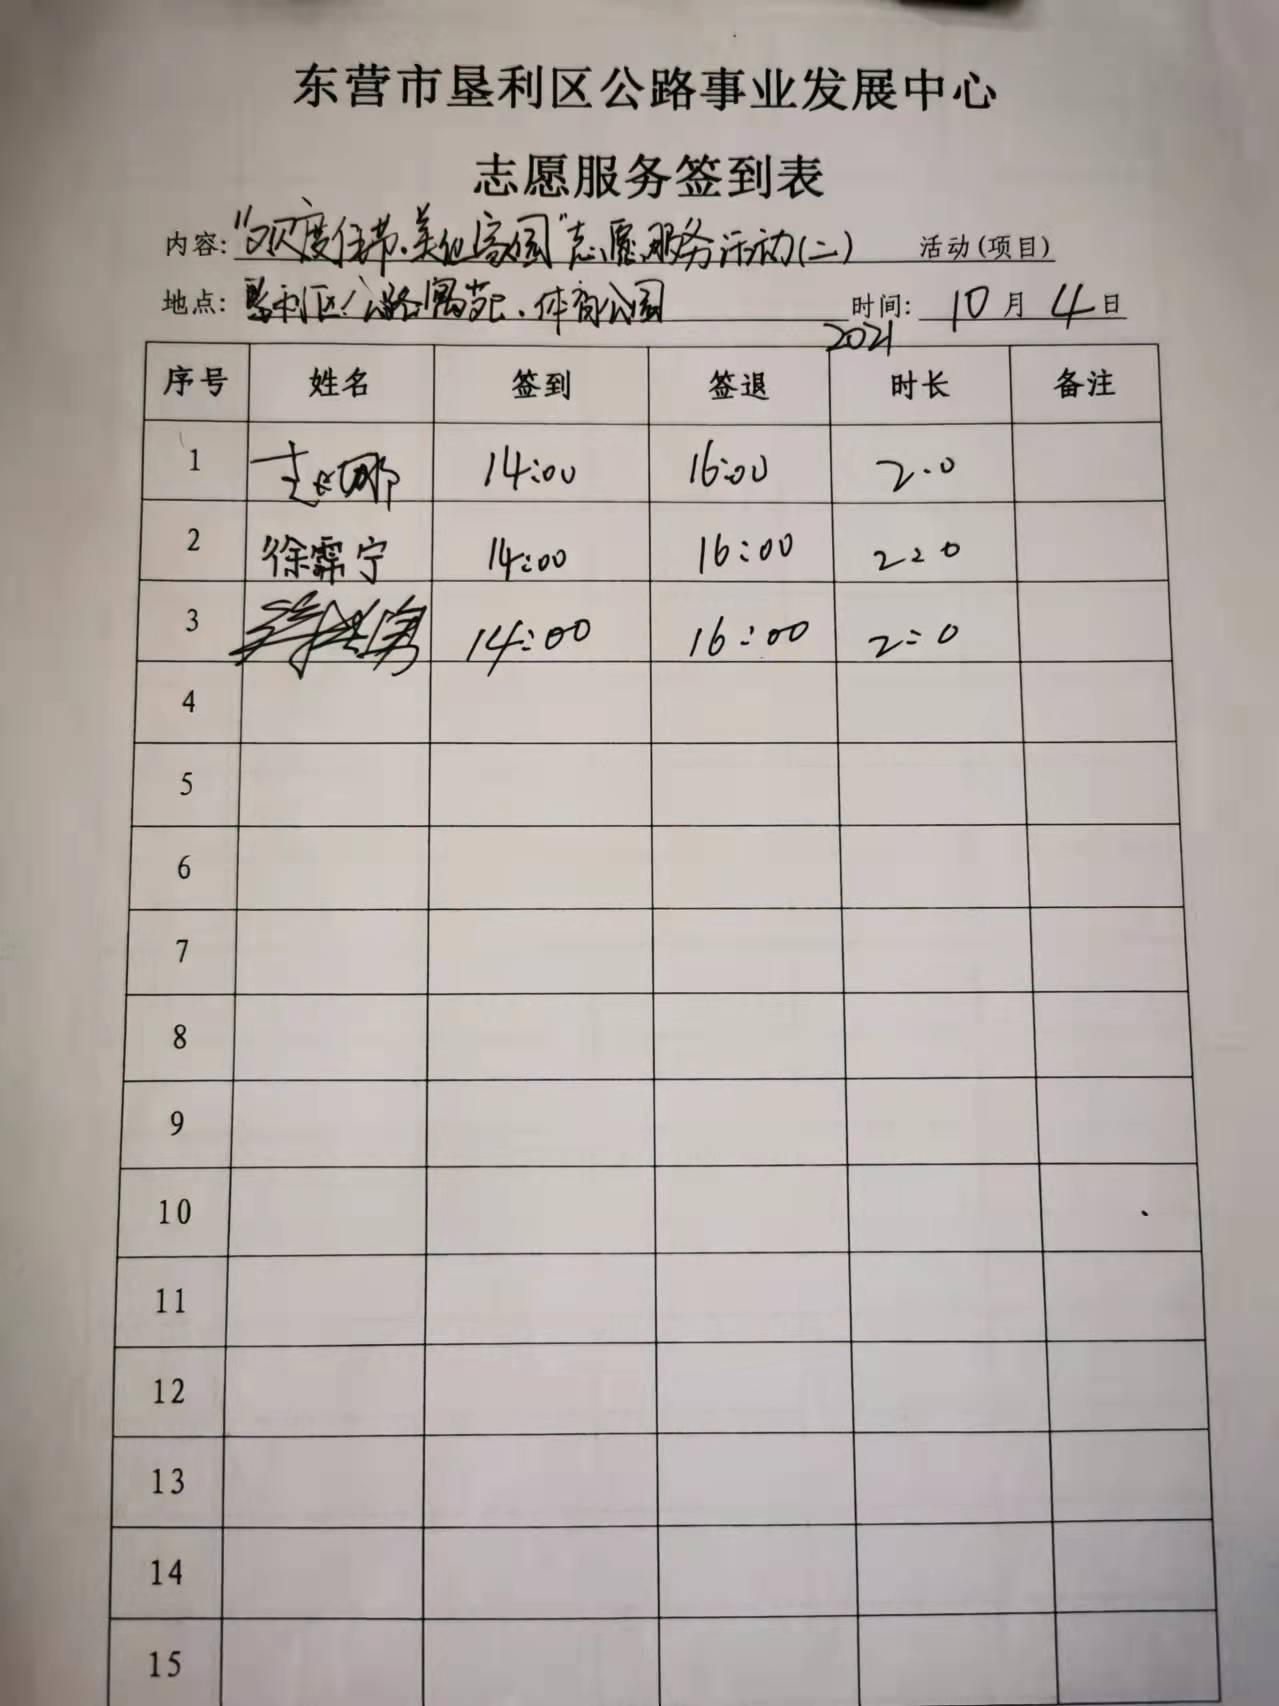 东营市垦利区公路事业发展中心
志愿服务签到表
内容:"欢度佳节·美化家园"志愿服务活动(二) 活动(项目)
地点:垦利区公路寓苑、体育公园 时间: 10月4日
2021
序号 姓名 签到 签退 时长 备注
1 赵娜 14:00 16:00 2.0
2 徐霈宁 14:00 16:00 2:0
3 14:00 16:00 2:0
4
5
6
7
8
9
10
11
12
13
14
15